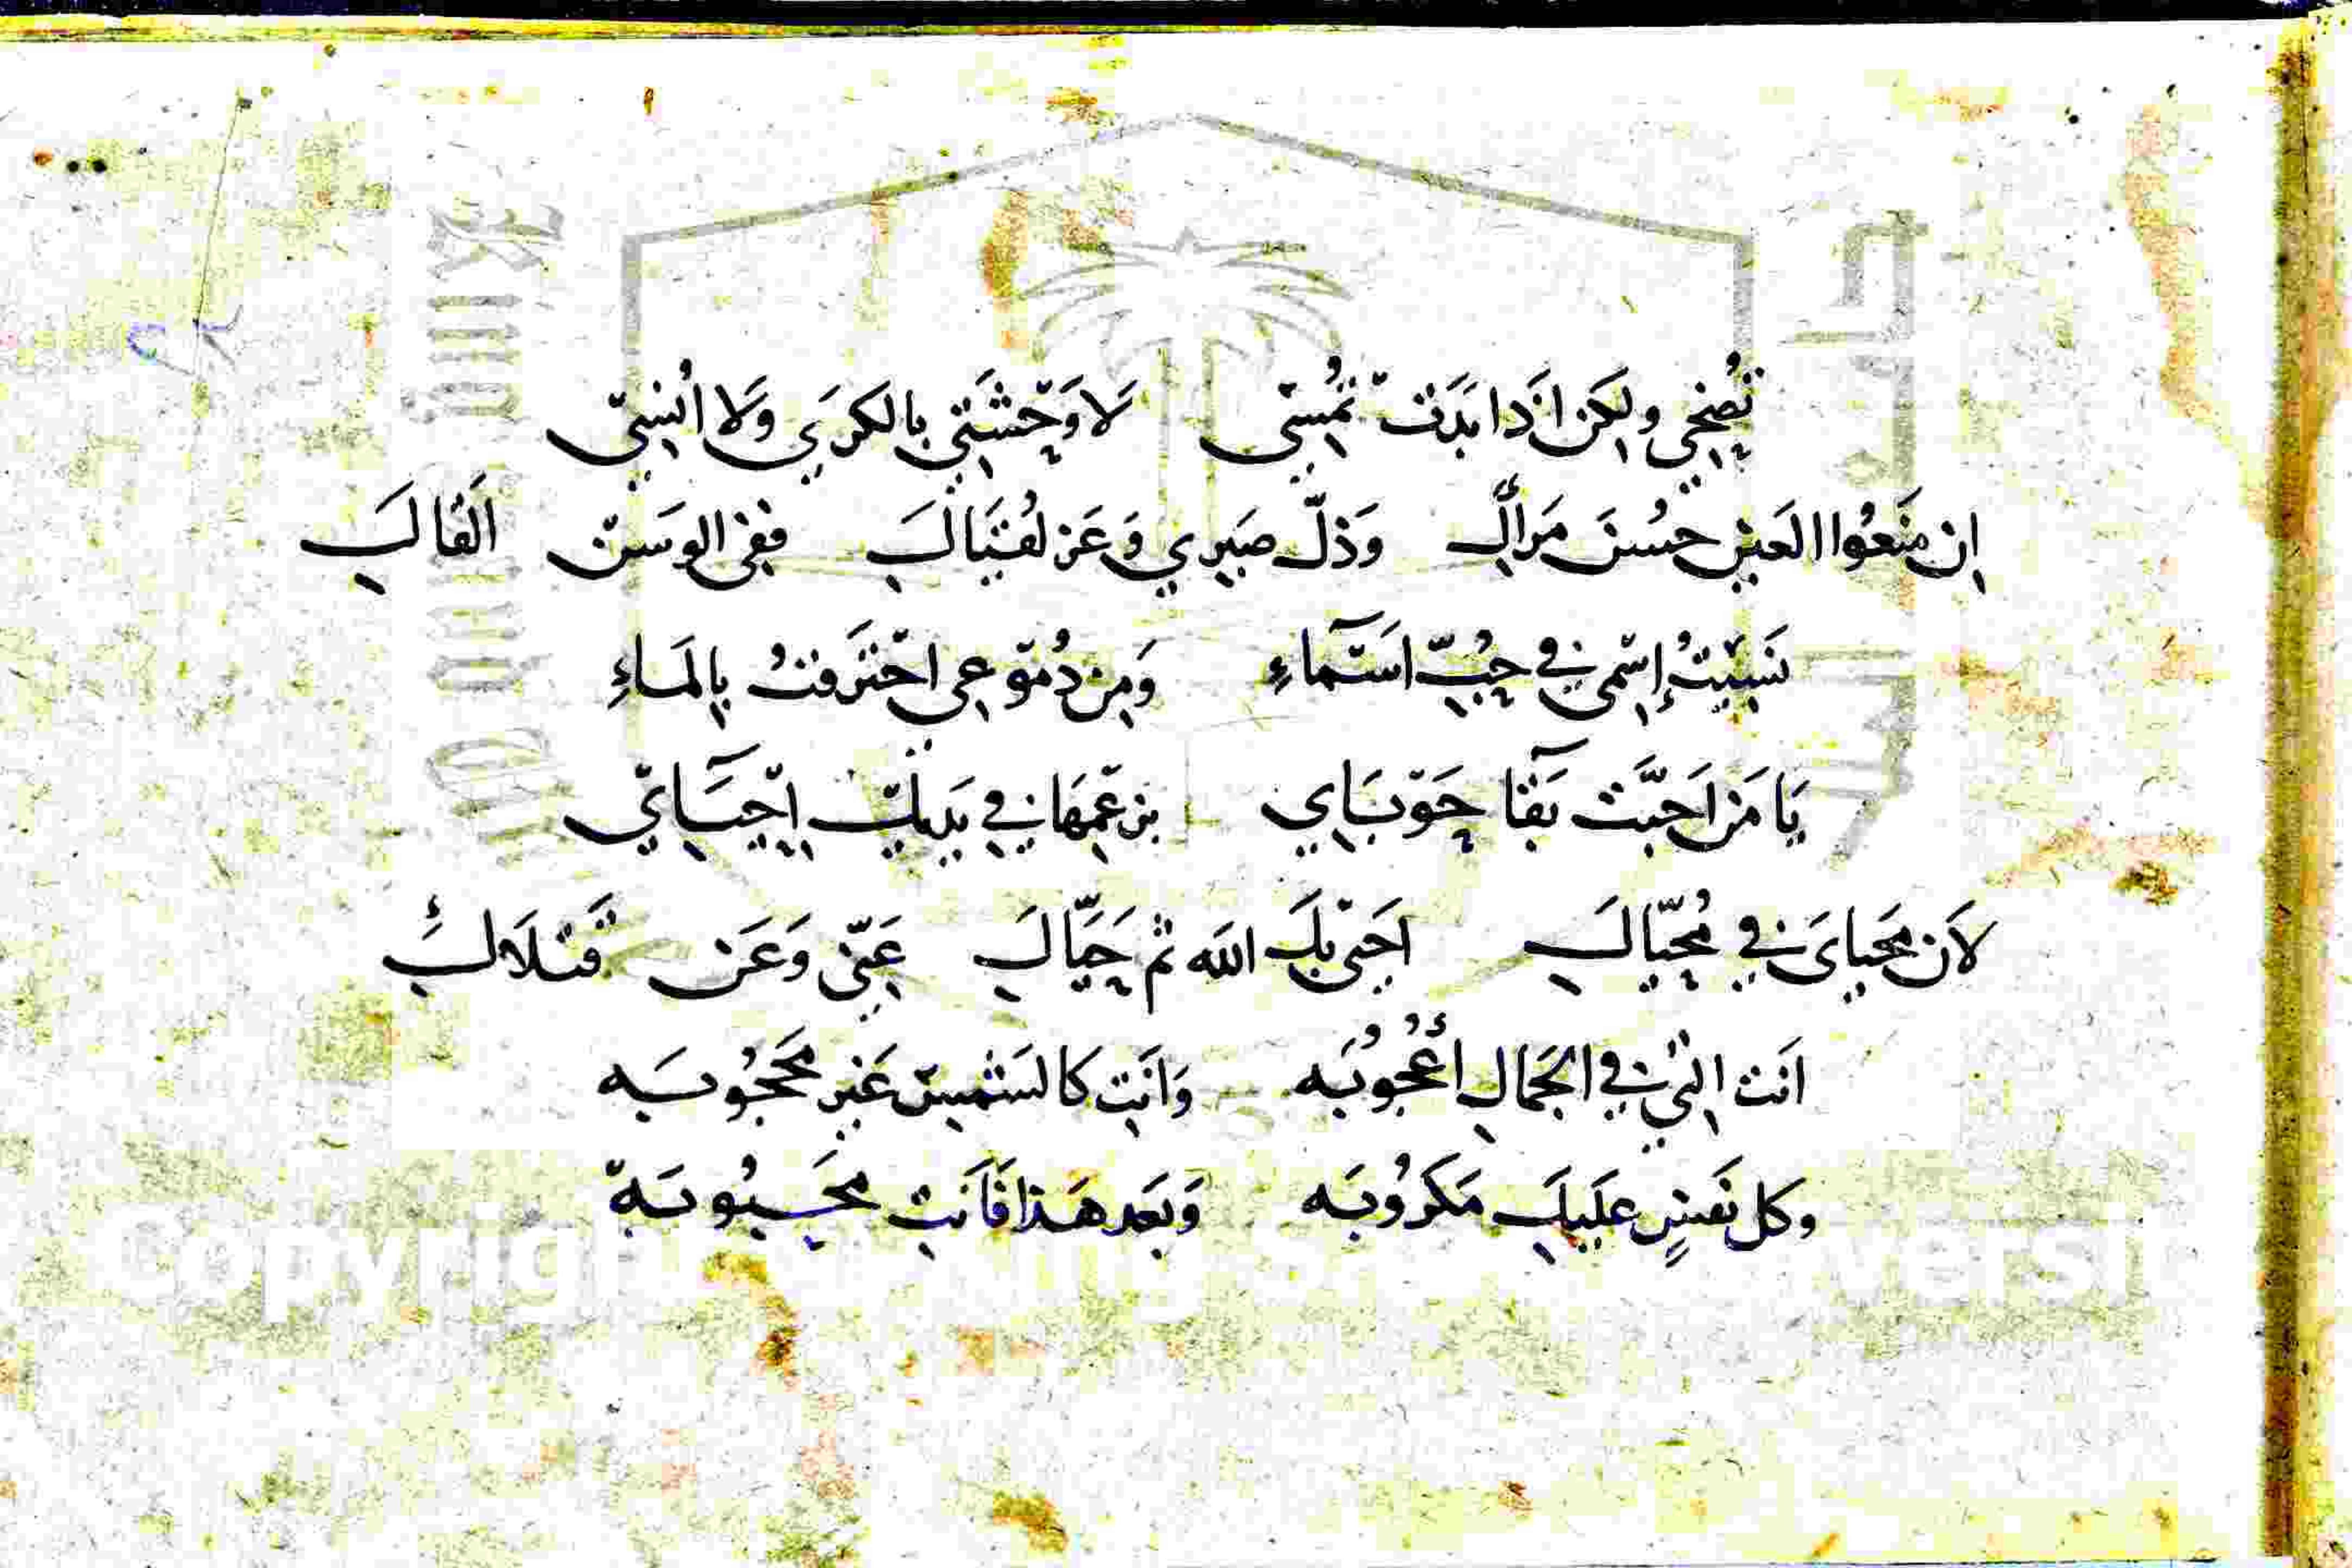 تُضْحِي ولكِن اذَا بَدَتْ تُمْسِي لَا وَحْشَتِي بالكرَي وَلَا اُنْسِي
اِن مَنَعُوا العَين حُسْنَ مَرآكِ وَذلّ صَبرِي وَعَز لُقيَاكِ ففِى الوَسَن اَلقَاكِ
نَسِيْتُ إسْمِى فِي حُبِّ اَسْمآءِ وَمِن دُمُوعِي احْتَرَقتُ بِالمَاءِ
يَا مَن اَحبَّت بَقَآ حَوْبَايِ بزعمِهَا فِي يَدَيكِ اِحْيَآئي
لاَن مَحيايَ فِي مُحيّاكِ اَحيَى بكِ الله ثم حَيّاكِ عَنّي وَعَن قَتلَاكِ
اَنت التِي فِي الجَمالِ أُعْجُوبَه وَاَنتِ كَالشَمسِ غَير مَحجُوبَه
وكل نَفسٍ عَلَيكِ مَكرُوبَه وَبَعد هَذا فَاَنتِ مَحبُوبَة
Copyright King versi